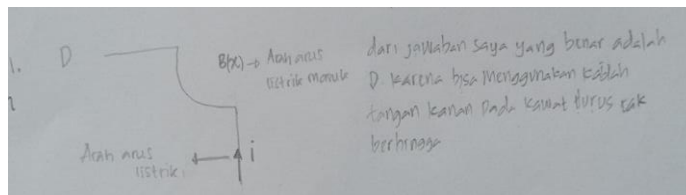 1. D
B(x) → Arah arus
listrik masuk
Arah arus
listrik
i
dari jawaban saya yang benar adalah
D karena bisa menggunakan kaidah
tangan kanan pada kawat lurus tak
berhingga